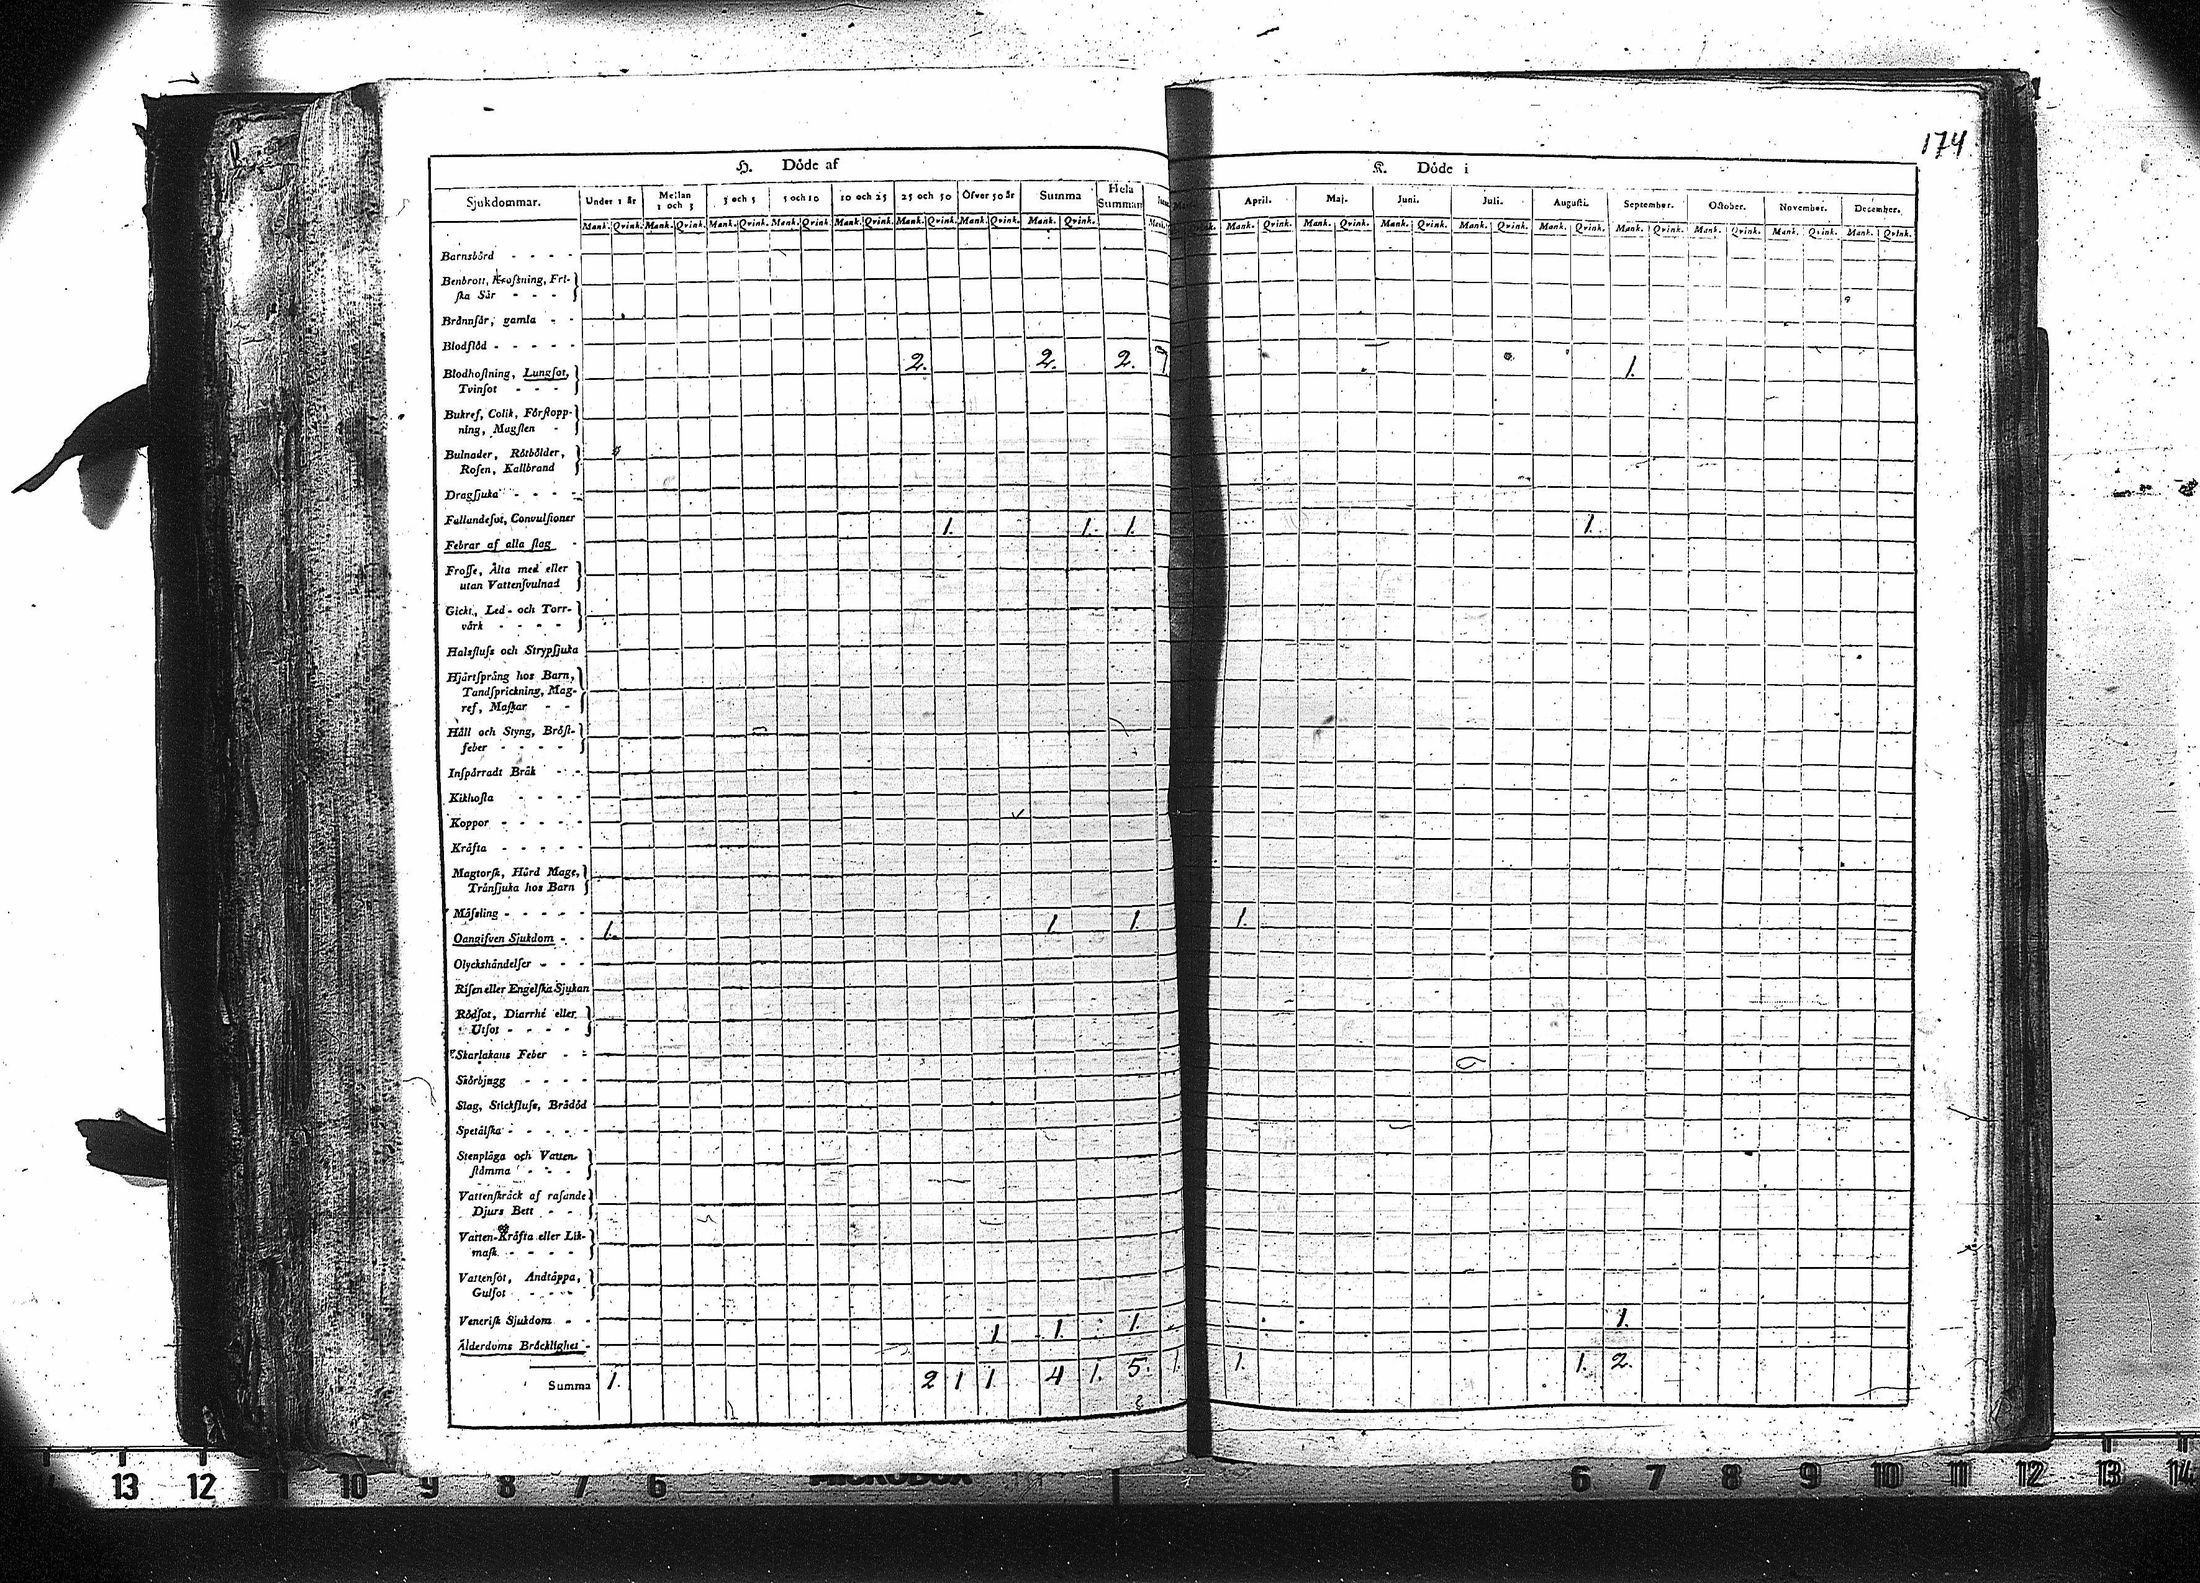 174
H. Döde af
K. Döde i
Sjukdommar. Under 1 år Mellan 1 och 3 3 och 5 5 och 10 10 och 25 25 och 50 Öfver 50 år Summa Hela Summan
April. Maj. Juni. Juli. Augusti. September. October. November. December.
Mank. Qvink. Mank. Qvink. Mank. Qvink. Mank. Qvink. Mank. Qvink. Mank. Qvink. Mank. Qvink. Mank. Qvink. Mank.
Qvink. Mank. Qvink. Mank. Qvink. Mank. Qvink. Mank. Qvink. Mank. Qvink. Mank. Qvink. Mank. Qvink. Mank. Qvink. Mank. Qvink.
Barnsbörd - - - -
Benbrott, Krossning, Fri-
ska Sår - - -
Brännsår, gamla - -
Blodflöd - - - - -
Blodhostning, Lungsot, 2. 2. 2. 1.
Tvinsot - - -
Bukref, Colik, Förstopp-
ning, Magsten -
Bulnader, Rötbölder,
Rosen, Kallbrand
Dragsjuka - - - -
Fallandesot, Convulsioner
Febrar af alla slag - 1. 1. 1. 1.
Frosse, Älta med eller
utan Vattensvulnad
Gickt, Led- och Torr-
värk - - - -
Halsfluss och Strypsjuka
Hjärtsprång hos Barn,
Tandsprickning, Mag-
ref, Maskar - -
Håll och Styng, Bröst-
feber - - - -
Inspärradt Bråk - -
Kikhosta - - - -
Koppor - - - - -
Kräfta - - - - -
Magtorsk, Hård Mage,
Tränsjuka hos Barn
Mässling - - - - -
Oangifven Sjukdom - - 1. 1. 1. 1.
Olyckshändelser - - -
Risen eller Engelska Sjukan
Rödsot, Diarrhé eller
Utsot - - - -
Skarlakans Feber - -
Skörbjugg - - - -
Slag, Stickfluss, Brådöd
Spetälska - - - - -
Stenplåga och Vatten-
stämma - - -
Vattenskräck af rasande
Djurs Bett - -
Vatten-Kräfta eller Lik-
mask - - - -
Vattensot, Andtäppa,
Gulsot - - - -
Venerisk Sjukdom - -
Ålderdoms Bräcklighet - 1. 1. 1. 1.
Summa 1. 2 1 1 4 1. 5. 1. 1. 1. 2.
13 12 11 10 9 8 7 6 6 7 8 9 10 11 12 13 14